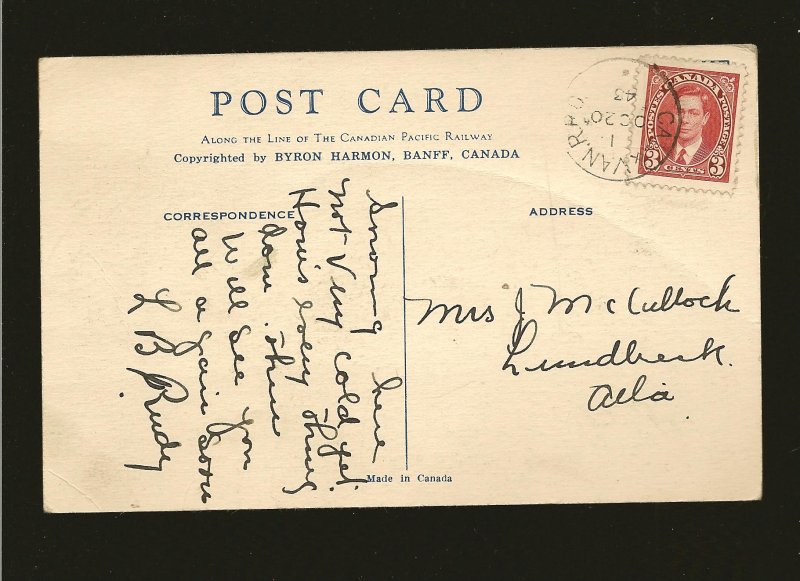 POST CARD
ALONG THE LINE OF THE CANADIAN PACIFIC RAILWAY
Copyrighted by BYRON HARMON, BANFF, CANADA
CORRESPONDENCE
ADDRESS
Snowing here
not very cold yet.
How's every thing
down
Will see you
all again soon
L B Rudy
Mrs J McCullock
Lundbreck.
Alta
CANADA
POSTES POSTAGE
3 CENTS 3
VAN. R.P.O.
CA
1
DC 20
43
Made in Canada